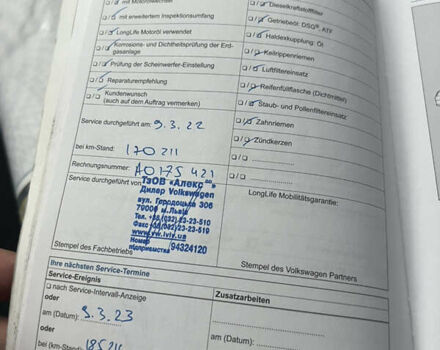 mit Motorölwechsel
mit erweitertem Inspektionsumfang
LongLife Motoröl verwendet
Korrosions- und Dichtheitsprüfung der Erd-
gasanlage
Prüfung der Scheinwerfer-Einstellung
Reparaturempfehlung
Kundenwunsch
(auch auf dem Auftrag vermerken)
Service durchgeführt am: 9.3.22
bei km-Stand: 170 211
Rechnungsnummer: A0175 421
Service durchgeführt von:
ТзОВ «Алекс
Дилер Volkswagen
вул. Городоцька 306
79000 м.Львів
Тел. +38(032)23-23-510
Факс +38(032)23-23-519
www.vw.lviv.ua
Номер
підприємства 94324120
Stempel des Fachbetriebs
Dieselkraftstofffilter
Getriebeöl: DSG®, ATF
Haldexkupplung: Öl
Keilrippenriemen
Luftfiltereinsatz
Reifenfüllflasche (Dichtmittel)
Staub- und Pollenfiltereinsatz
Zahnriemen
Zündkerzen
LongLife Mobilitätsgarantie:
Stempel des Volkswagen Partners
Ihre nächsten Service-Termine
Service-Ereignis
nach Service-Intervall-Anzeige
oder
am (Datum): 9.3.23
oder
bei (km-Stand): 185211
Zusatzarbeiten
am (Datum):